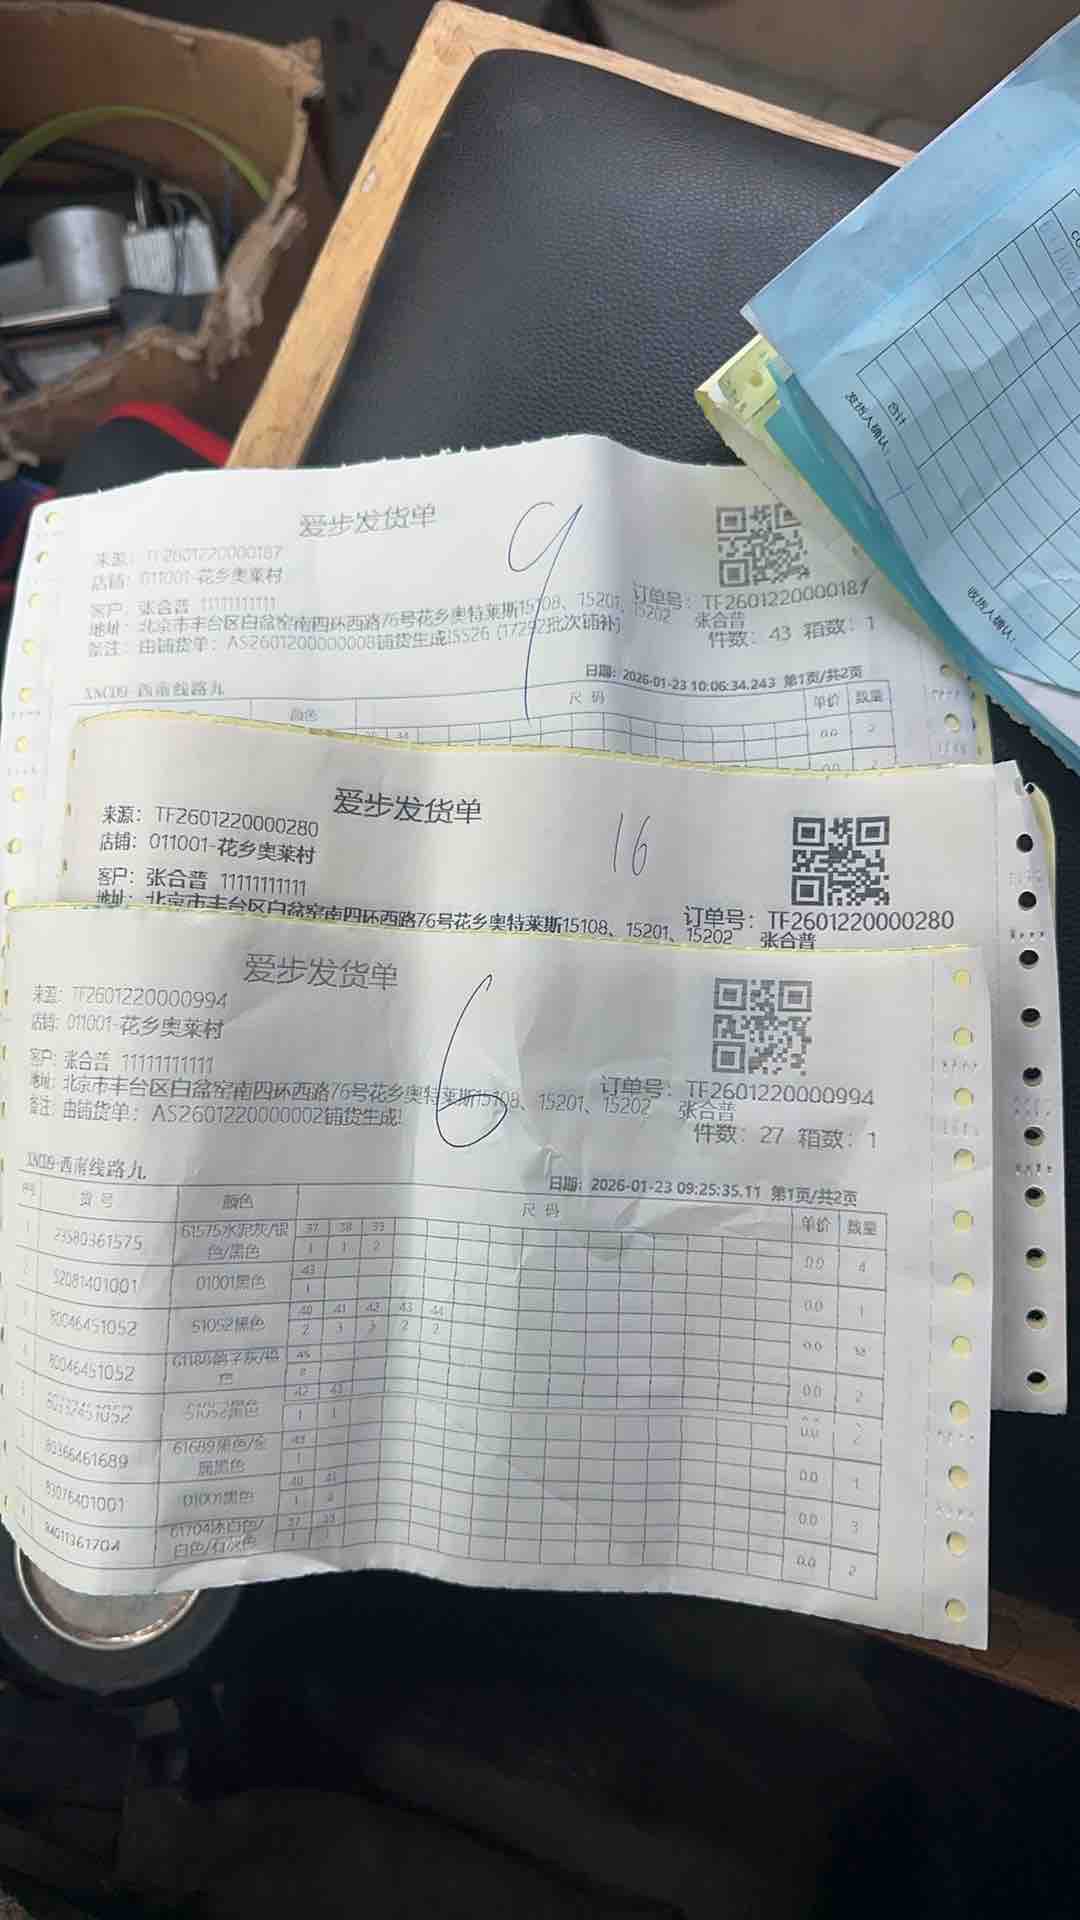 爱步发货单
9
来源: TF2601220000187
店铺: 011001-花乡奥莱村
客户: 张合普 11111111111
订单号: TF2601220000187
地址: 北京市丰台区白盆窑南四环西路76号花乡奥特莱斯15108、15201、15202 张合普
备注: 由铺货单: AS2601200000008铺货生成!SS26 (17252批次铺补)
件数: 43 箱数: 1
XNCD9-西南线路九
日期: 2026-01-23 10:06:34.243 第1页/共2页
颜色 尺 码 单价 数量
0.0 2
0.0 2
爱步发货单
16
来源: TF2601220000280
店铺: 011001-花乡奥莱村
客户: 张合普 11111111111
订单号: TF2601220000280
地址: 北京市丰台区白盆窑南四环西路76号花乡奥特莱斯15108、15201、15202 张合普
爱步发货单
6
来源: TF2601220000994
店铺: 011001-花乡奥莱村
客户: 张合普 11111111111
订单号: TF2601220000994
地址: 北京市丰台区白盆窑南四环西路76号花乡奥特莱斯15108、15201、15202 张合普
备注: 由铺货单: AS2601220000002铺货生成!
件数: 27 箱数: 1
XNCD9-西南线路九
日期: 2026-01-23 09:25:35.11 第1页/共2页
序号 货 号 颜色 尺 码 单价 数量
23580361575 61575水泥灰/银色/黑色 37 38 39 0.0 4
1 1 2
52081401001 01001黑色 43 0.0 1
1
80046451052 51052黑色 40 41 42 43 44 0.0
2 3 3 2 2
80046451052 鸽子灰/ 45 0.0 2
2
51052黑色 42 43 0.0 2
1 1
80366461689 61689黑色/金属黑色 43 0.0 1
1
83076401001 01001黑色 40 41 0.0 3
1 2
84011361704 61704冰白色/白色/石灰色 37 39 0.0 2
1 1
合计
发货人确认:
收货人确认: